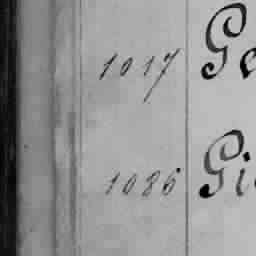 1017 Ge
1086 Gi